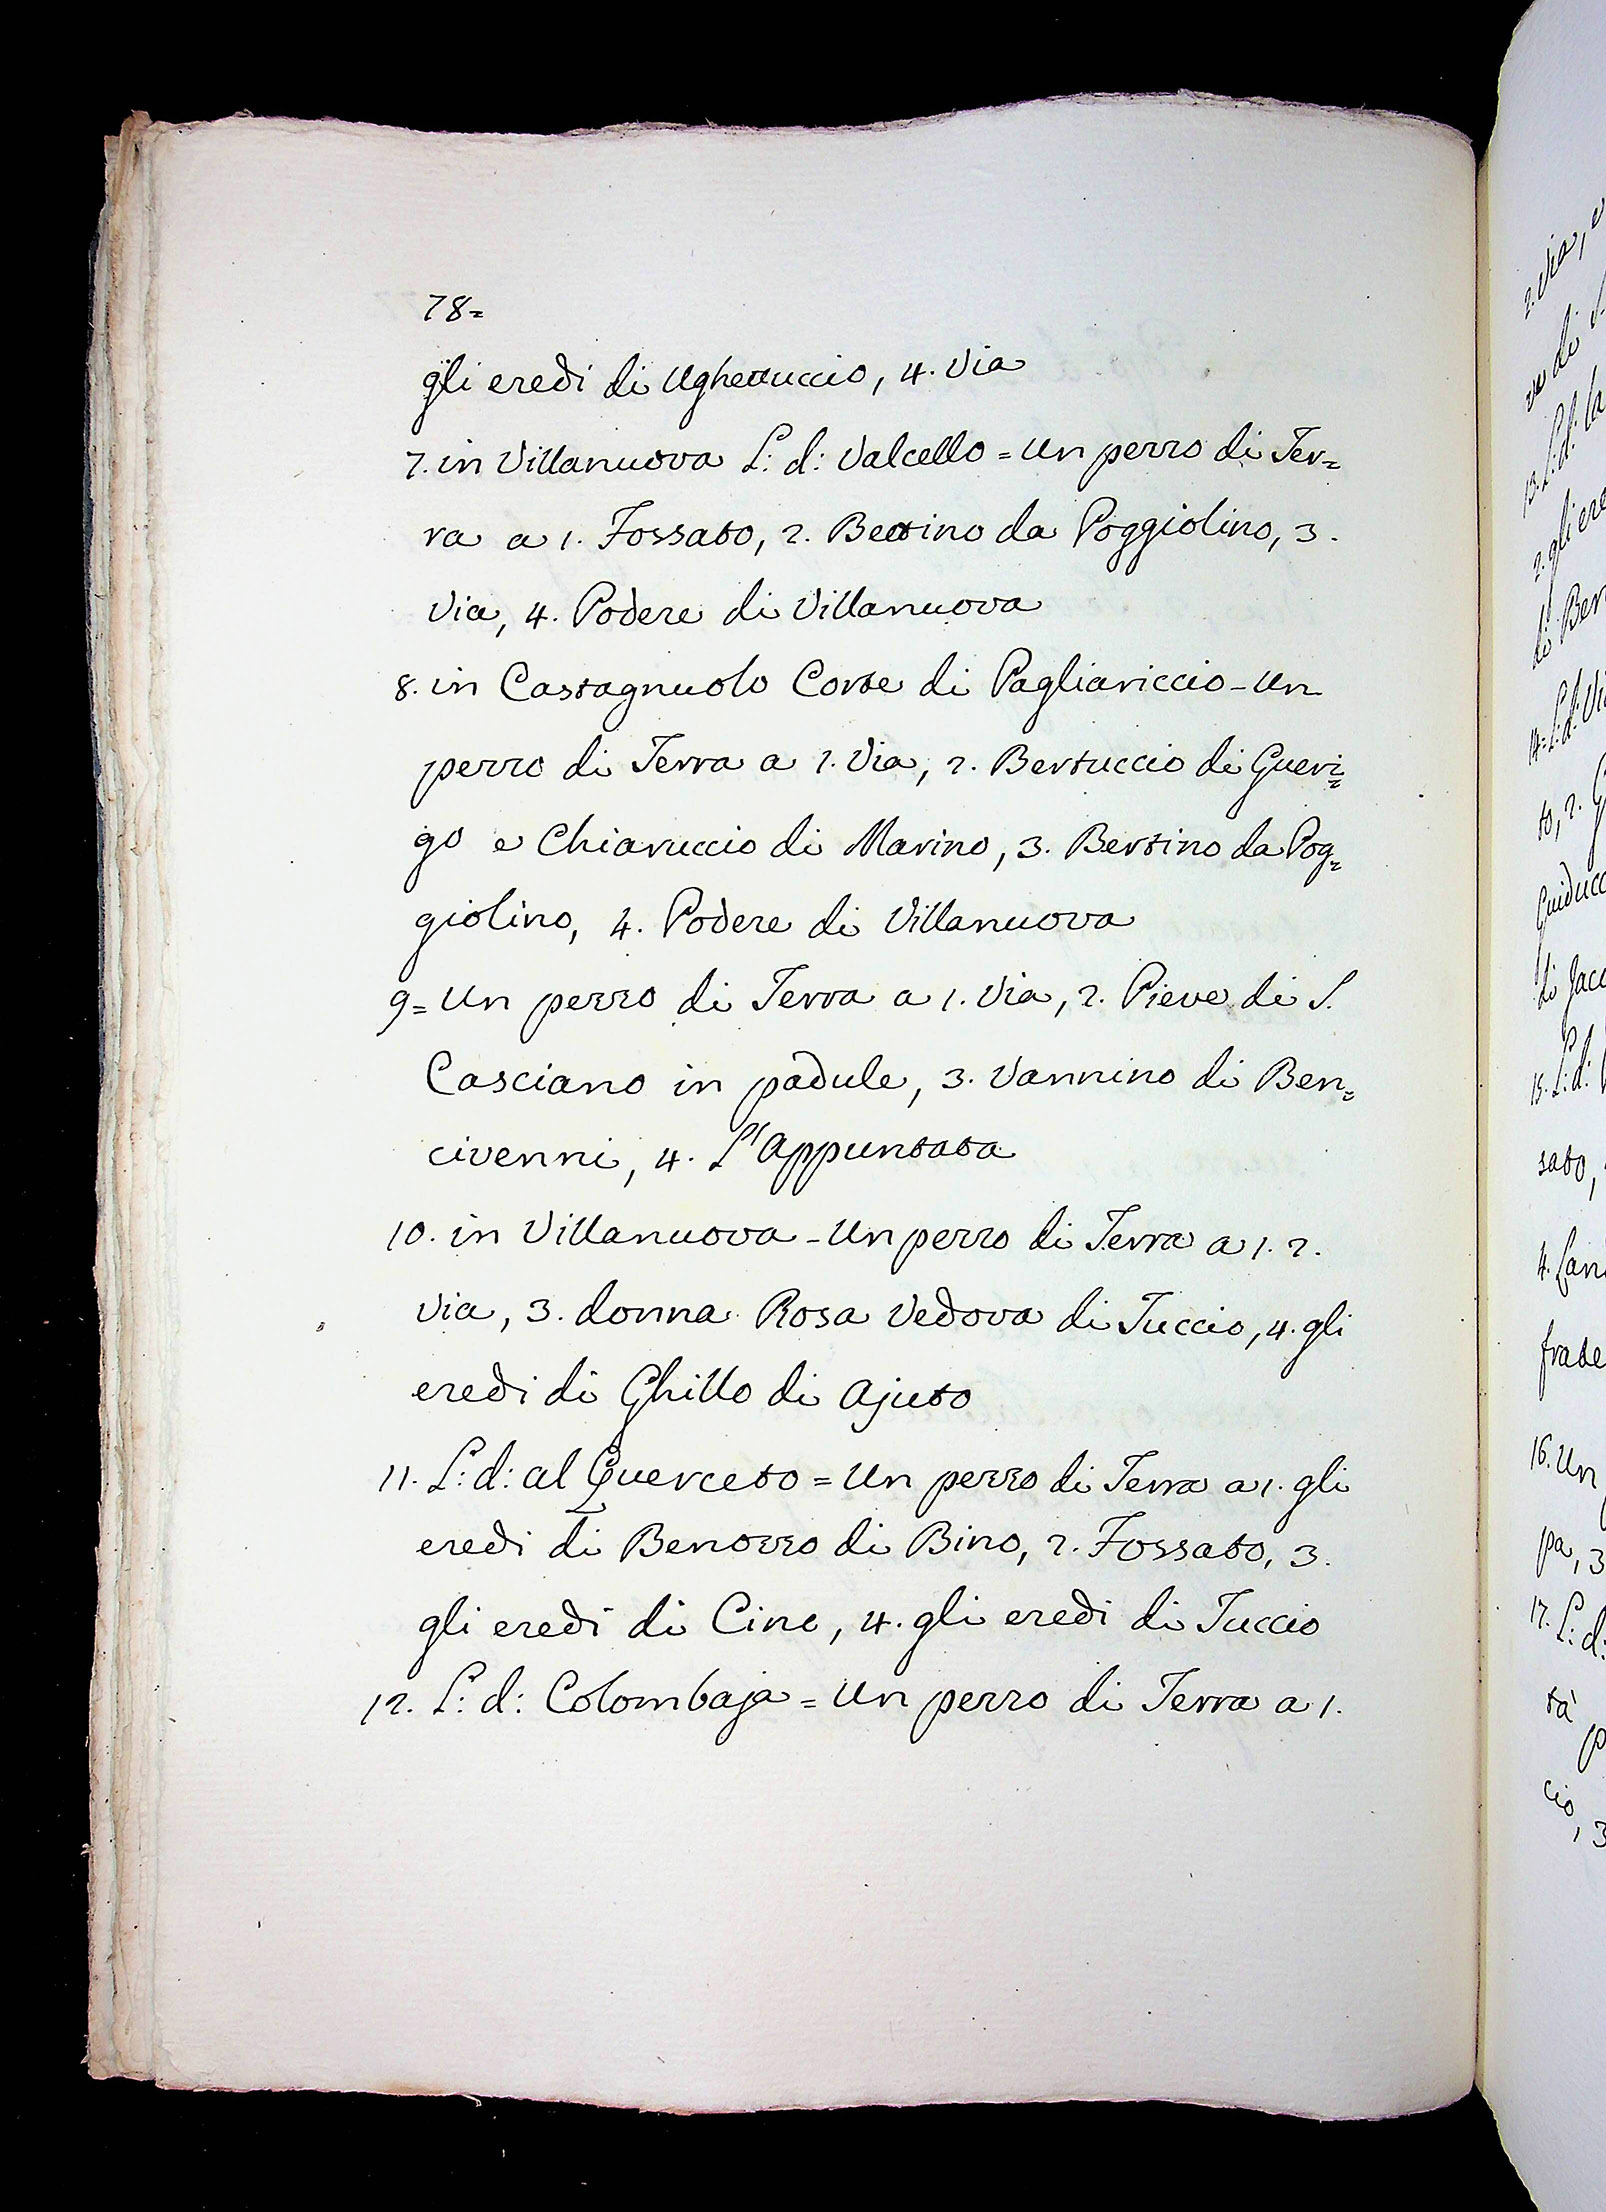 78=
gli eredi di Ughettuccio, 4. Via
7. in Villanuova L: d: Valcello = Un pezzo di Ter=
ra a 1. Fossato, 2. Bettino da Poggiolino, 3.
Via, 4. Podere di Villanuova
8. in Castagnuolo Corte di Pagliariccio - Un
pezzo di Terra a 1. Via, 2. Bertuccio di Gueri=
go e Chiaruccio di Marino, 3. Bertino da Pog=
giolino, 4. Podere di Villanuova
9= Un pezzo di Terra a 1. Via, 2. Pieve di S.
Casciano in padule, 3. Vannino di Ben=
civenni, 4. L'Appuntata
10. in Villanuova - Un pezzo di Terra a 1. 2.
Via, 3. donna Rosa Vedova di Tuccio, 4. gli
eredi di Ghillo di Ajuto
11. L: d: al Querceto = Un pezzo di Terra a 1. gli
eredi di Benozzo di Bino, 2. Fossato, 3.
gli eredi di Cino, 4. gli eredi di Tuccio
12. L: d: Colombaja = Un pezzo di Terra a 1.
2. Via,
di
13. L: d:
2. gli
di
14= L: d:
to, 2.
di
15. L: d:
sato,
4.
16. Un
pa, 3
17. L: d:
tà
cio, 3